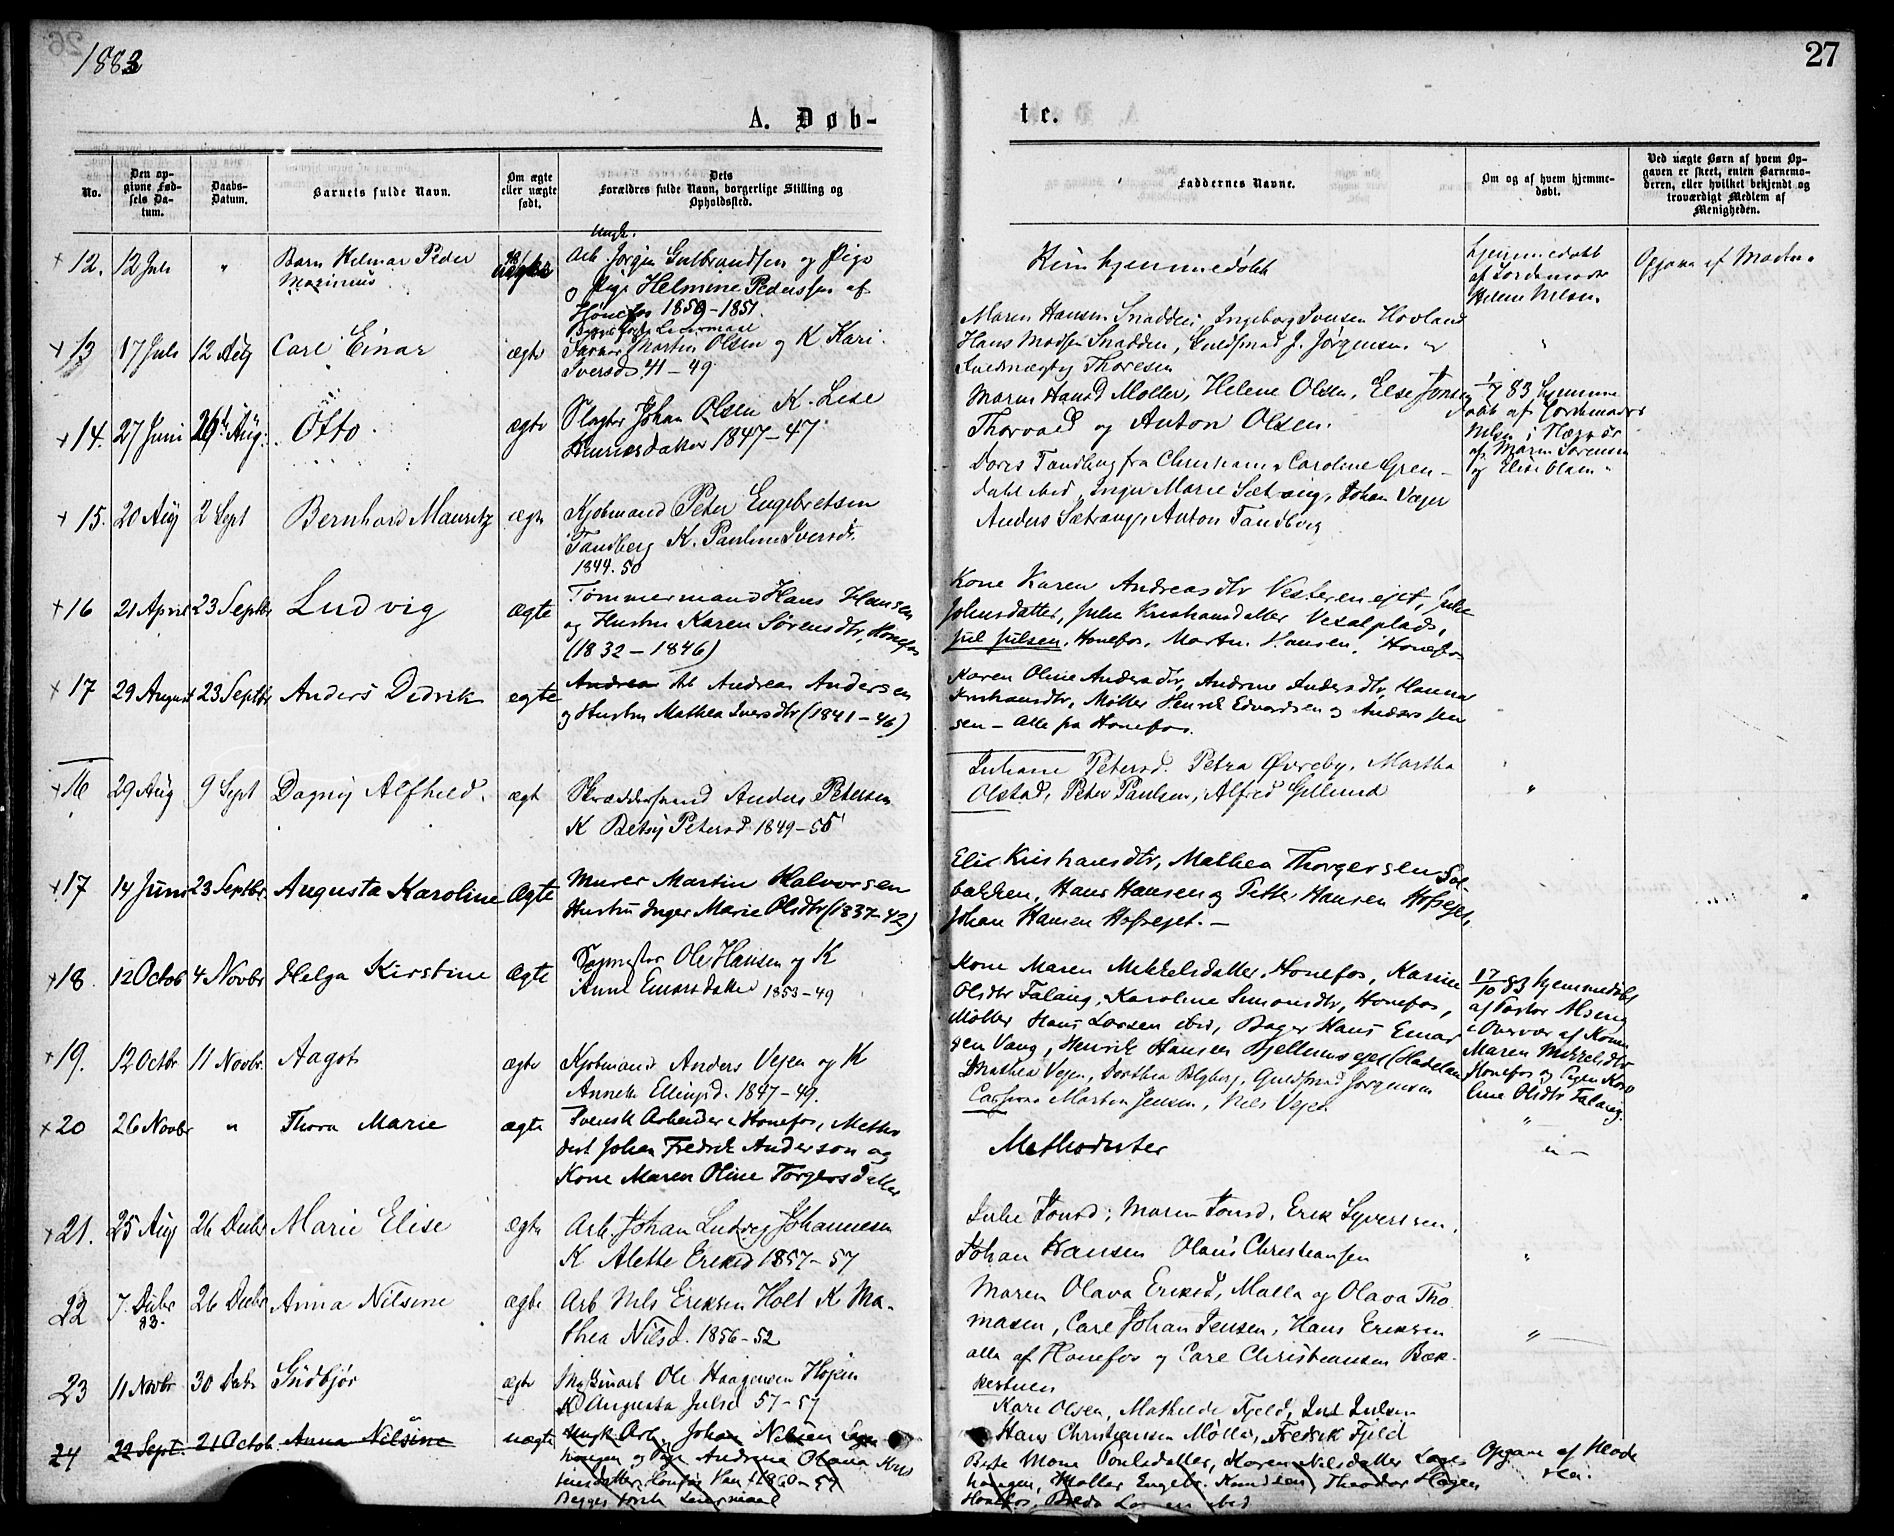 1883
27
A. Døb-
te.
No.
Den op-
givne Fød-
sels Da-
tum.
Daabs-
Datum.
Barnets fulde Navn.
Om ægte
eller uægte
født.
Dets
Forældres fulde Navn, borgerlige Stilling og
Opholdssted.
Faddernes Navne.
Om og af hvem hjemme-
døbt.
Ved uægte Børn af hvem Op-
gaven er skeet, enten Barnemo-
deren, eller hvilket bekjendt og
troværdigt Medlem af
Menigheden.
12. 12 Juli " Barn Hilmar Peder
Marinius
Ungk.
Arb Jørgen Gulbrandsen og Pige
og Pige Helmine Pedersen af
Hönefos 1859-1851.
Kun hjemmedøbt
hjemmedøbt
af Jordemoder
Helene Nilsen
Opgave af Moderen
13 17 Juli 12 Aug Carl Einar ægte
Martin Olsen og K Kari
Iversd. 41-49
Maren Hansen Snadden, Ingeborg Iversen Hovland
Hans Madsen Snadden, Guldsmed J. Jørgensen og
Thoresen
"
14. 27 Juni 26 Aug. Otto ægte
Slagter Johan Olsen K. Lise
Henriksdatter 1847-47.
Maren Hansd Møller, Helene Olsen, Else Jonsen
Thorvald og Anton Olsen.
1/7 83 hjemme
døbt af Jordemoder
Nilsen i Nærvær
af Maren Sørensen
og Elise Olsen
15. 20 Aug 2 Sept Bernhard Mauritz ægte
Kjøbmand Peter Engebretsen
Tandberg K. Pauline Iversdt.
1844.50
Doris Tandberg fra Christiania, Caroline Gren-
dahl ibid, Inger Marie Sætrang, Johan Vager
Anders Sætrang, Anton Tandberg
16 21 April 23 Septbr Ludvig ægte
Tømmermand Hans Hansen
og Hustru Karen Sørensdtr, Hønefos
(1832-1846)
Kone Karen Andreasdtr Vesterneiet, Julie
Johnsdatter, Julie Kristiansdatter Vesalplads,
Jul Julsen, Hønefos, Martin Hansen, Hønefos
17 29 August 23 Septbr Anders Didrik egte
Arb Andreas Andersen
og Hustru Mathea Iversdtr (1841-46)
Karen Oline Andersdtr, Andrine Andersdtr, Hanna
Kristiansdtr, Møller Henrik Edvardsen og Anders Jen
sen - Alle fra Hønefos.
16 29 Aug 9 Sept Dagny Alfhild. ægt
Skræddersvend Anders Petersen
K Betsy Petersd 1849-55
Juliane Petersd. Petra Øvreby, Martha
Olstad, Peter Paulsen, Alfred Gellund
"
17 14 Juni 23 Septbr Augusta Karoline Ægte
Murer Martin Halvorsen
Hustru Inger Marie Olsdtr (1837-42)
Elise Kristiansdtr, Mathea Thorgersen Sol-
bakken, Hans Hansen og Petter Hansen Hofseiet,
Johan Hansen Hofseiet. -
18. 12 Octob 4 Novbr Helga Kirstine Ægte
Sagmester Ole Hansen og K
Anne Einarsdatter 1853-49
Kone Maren Mikkelsdatter, Hønefos, Karine
Olsdtr Falang, Karoline Simonsdtr, Hønefos,
Møller Hans Larsen ibid, Bager Hans Einar
sen Vang, Henrik Hansen Bjellumseiet (Hadeland
17/10 83 hjemmedøbt
af Pastor Alseng
i Overvær af Kone
Maren Mikkelsdtr
Hønefos og Pigen Karo
line Olsdtr Falang.
19. 12 Octbr 11 Novbr. Aagot ægte
Kjøbmand Anders Vejen og K
Annette Ellingsd. 1847-49.
Mathea Vejen, Dorthea Blyberg, Guldsmed Jørgensen
Martin Jensen, Nils Vejen
"
20 26 Novbr " Thora Marie ægte
Svensk Arbeider i Hønefos, Metho
dist Johan Fredrik Anderson og
Kone Maren Oline Torgersdatter
Methodister
"
21. 25 Aug 26 Decbr Marie Elise ægte
Arb. Johan Ludvig Johannesen
K Alette Eriksd 1857-57
Julie Jonsd, Maren Jonsd, Erik Syversen,
Johan Hansen Olaus Christiansen
"
22 7. Decbr 83. 26 Decbr Anna Nilsine ægte
Arb Nils Eriksen Holt K Ma-
thea Nilsd. 1856-52
Maren Olava Eriksd, Malla og Olava Tho
masen, Carl Johan Jensen, Hans Eriksen
alle af Hønefos og Carl Christiansen Bæk-
kestuen
"
23 11 Novbr 30 Decbr Gudbjør ægte
Ole Haagensen Højen
K Augusta Julsd 57-57
Kari Olsen, Mathilde Fjeld, Jul Julsen
Hans Christiansen Møller, Fredrik Fjeld
24 22 Sept. 21 Octob Anna Nilsine uægte
Ungk Arb. Johan Nilsen
og Pige Andrine Olava Kris
tiansdatter, Hønefos 1860-59
Begges første Leiermaal
Mone Paulsdatter, Karen Nilsdatter
Møller Engebr. Knudsen, Theodor Hagen
Hønefos, ibid
Opgave af Mode
ren.